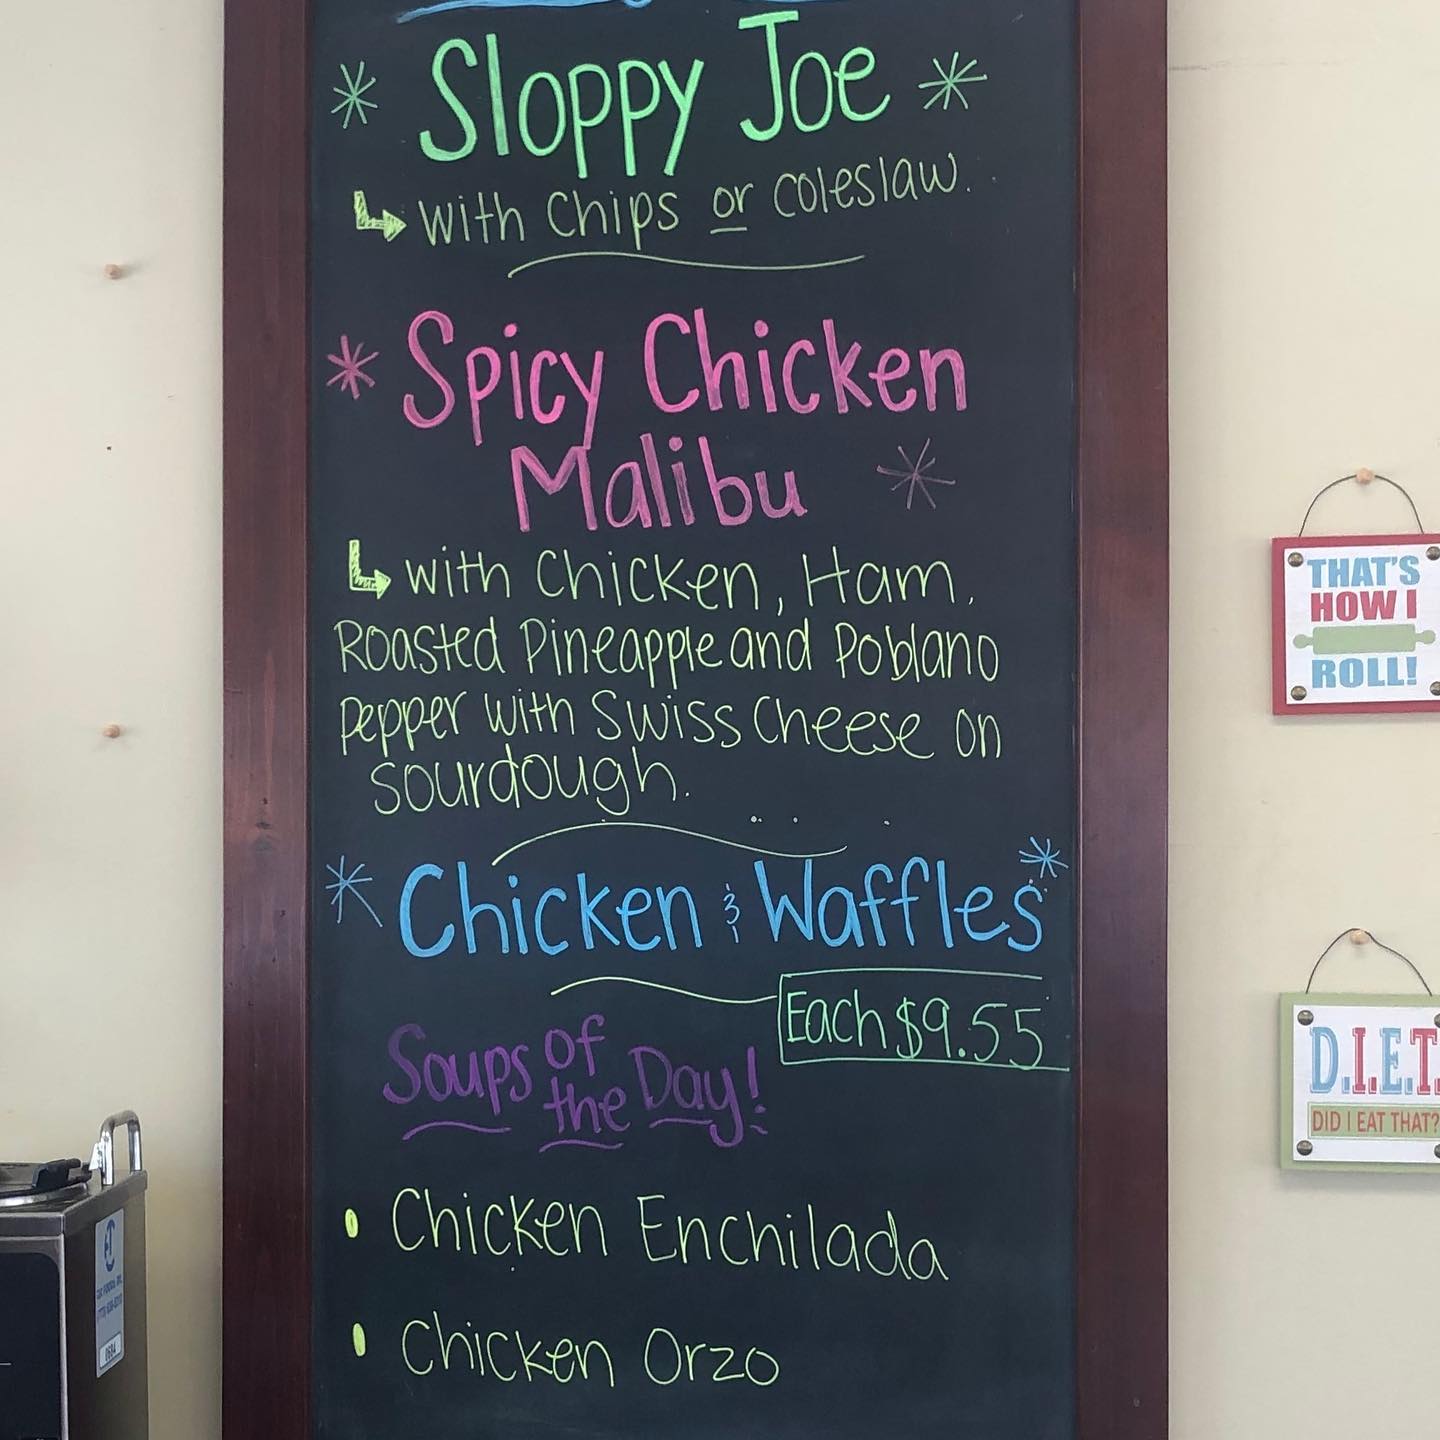 Sloppy Joe
with Chips or coleslaw.
Spicy Chicken
Malibu
with Chicken, Ham,
Roasted Pineapple and Poblano
Pepper with Swiss Cheese on
sourdough.
Chicken & Waffles
Each $9.55
Soups of the Day!
• Chicken Enchilada
• Chicken Orzo
THAT'S
HOW I
ROLL!
D.I.E.T.
DID I EAT THAT?